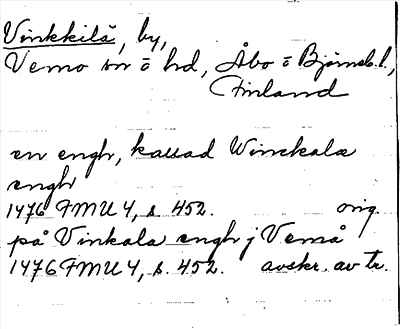 Vinkkilä, by,
Vemo sn o hd, Åbo o Björneb. l.,
Finland
en engh, kallad Winckala
engh
1476 FMU 4, s. 452. orig.
på Vinkala engh j Vemå
1476 FMU 4, s. 452. avskr. av tr.